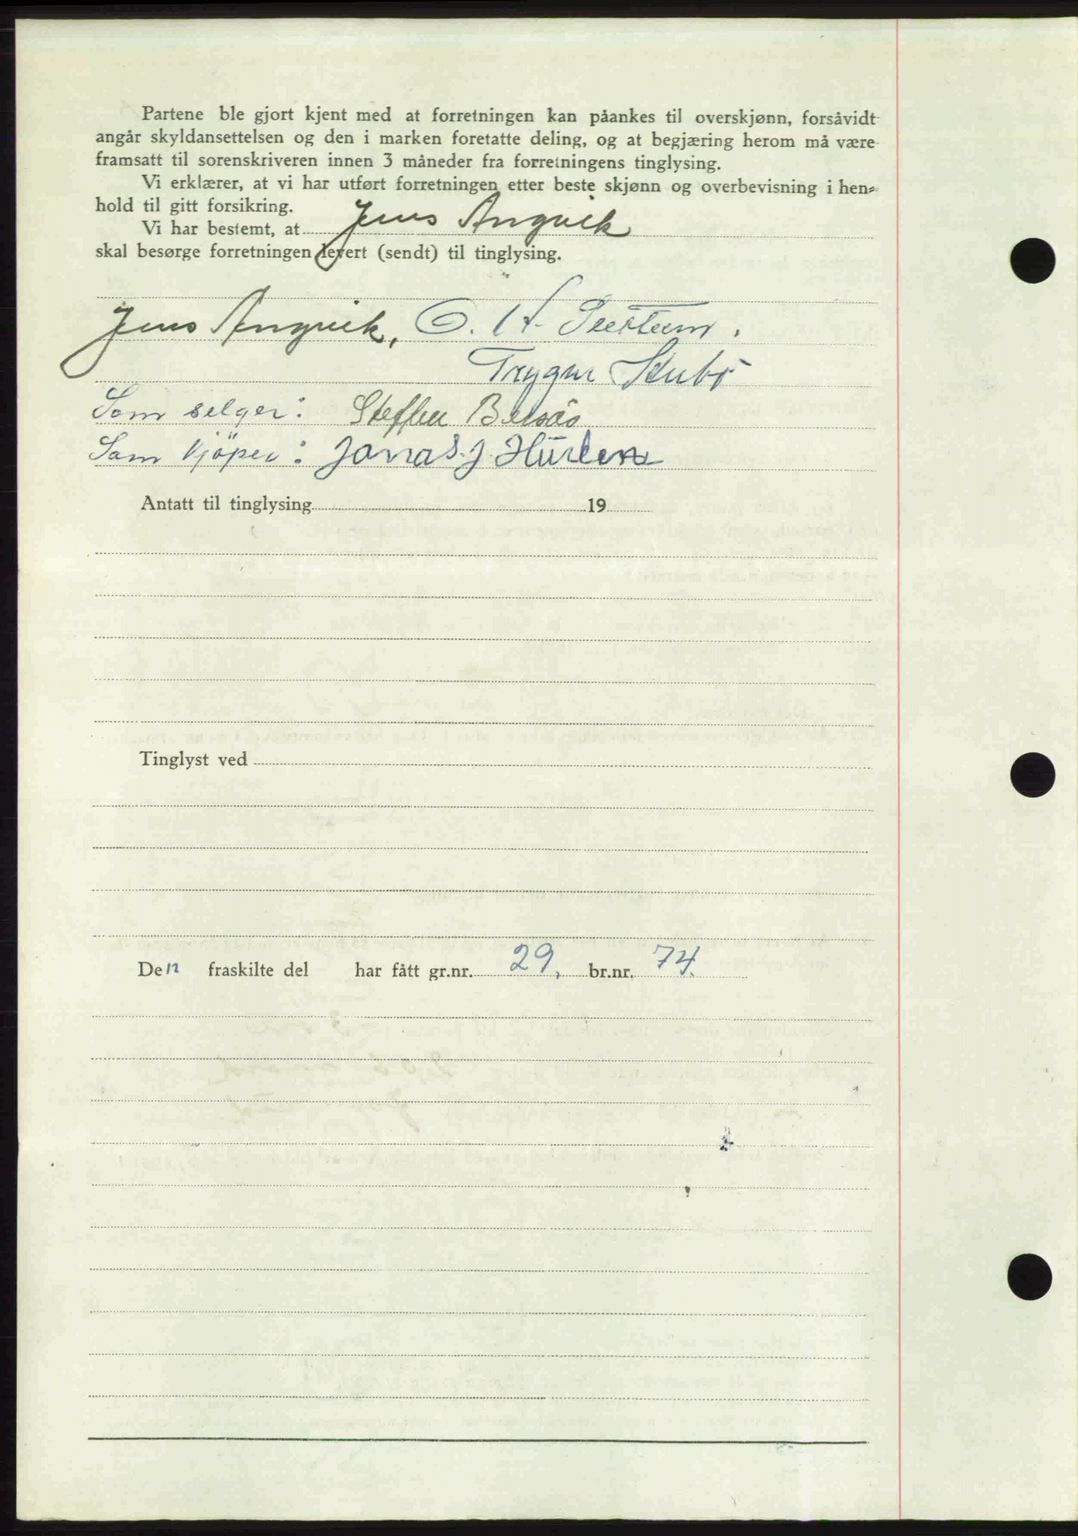 Partene ble gjort kjent med at forretningen kan påankes til overskjønn, forsåvidt
angår skyldansettelsen og den i marken foretatte deling, og at begjæring herom må være
framsatt til sorenskriveren innen 3 måneder fra forretningens tinglysing.
Vi erklærer, at vi har utført forretningen etter beste skjønn og overbevisning i hen-
hold til gitt forsikring.
Vi har bestemt, at Jens Angvik
skal besørge forretningen levert (sendt) til tinglysing.
Jens Angvik, O. H.
Som selger: Steffen
Som kjöper: Jonas J
Antatt til tinglysing 19
Tinglyst ved
Den fraskilte del har fått gr.nr. 29, br.nr. 74.